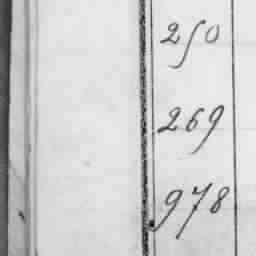 250
269
978